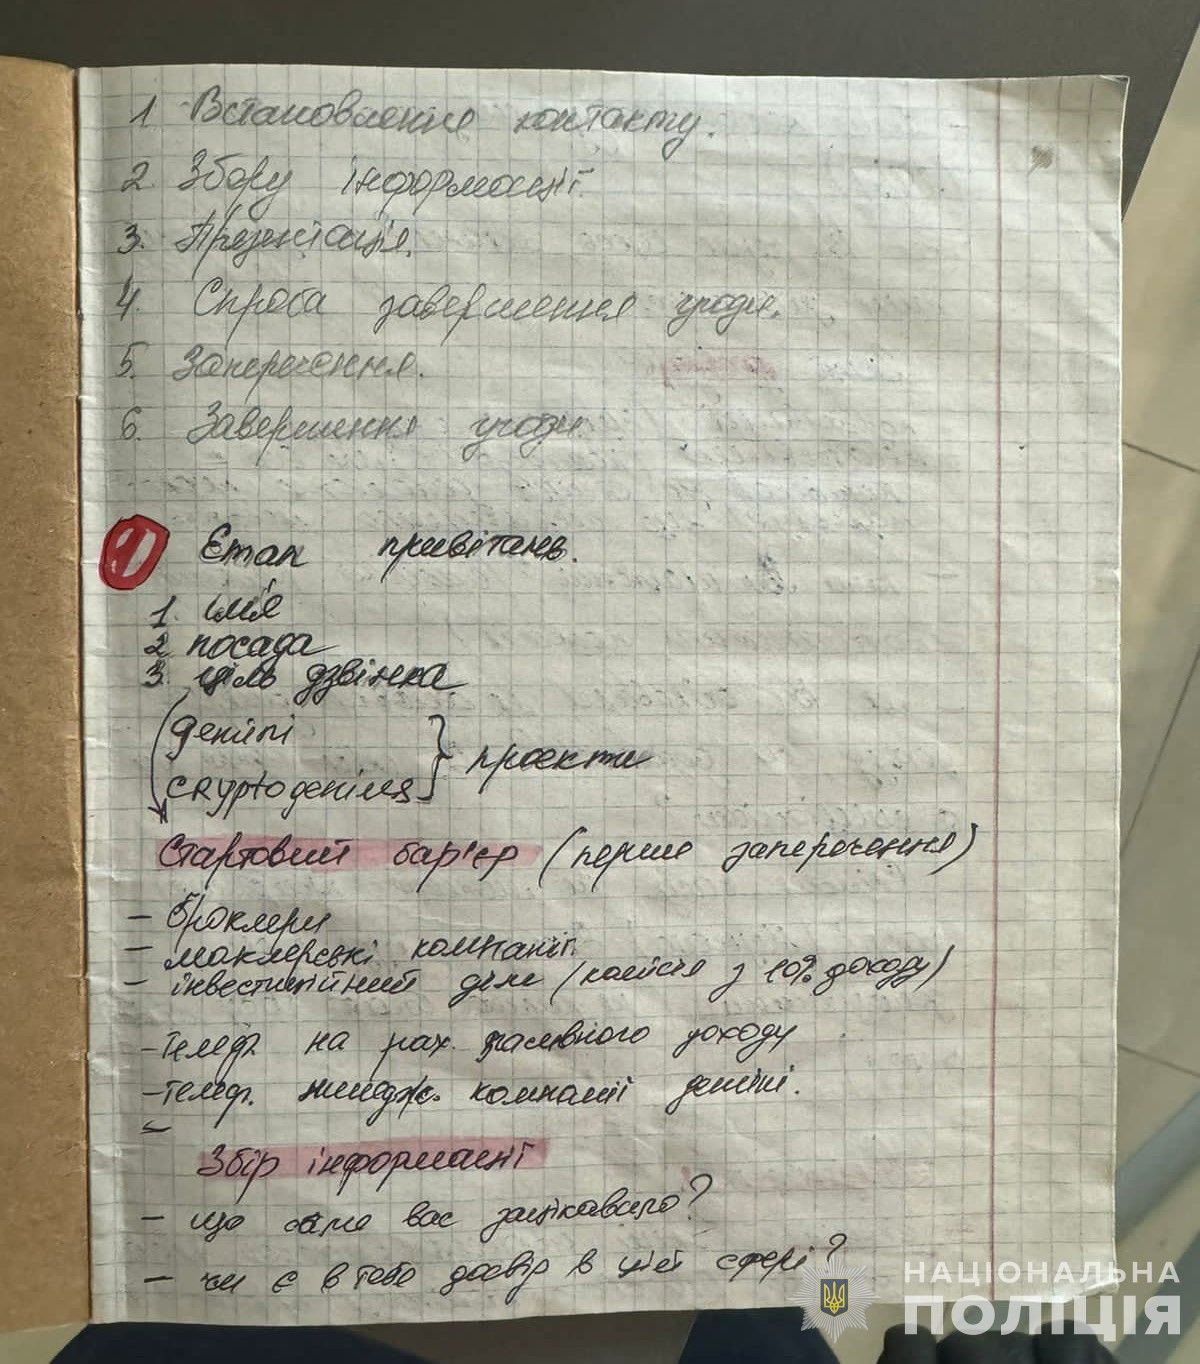 1 Встановлення контакту.
2. Збору інформації.
3. Презентація.
4. Спроба завершення угоди.
5. Заперечення.
6. Завершення угоди
1 Етап привітань.
1. імя
2 посада
3. ціль дзвінка.
проекти
Стартовий бар'єр (перше заперечення)
- брокери
- маклерські компанії.
- інвестиційний дім (комісія з 10% доходу)
- на рах. пасивного доходу
- телеф. менедж. компанії
-
Збір інформації
- що саме вас зацікавило?
- чи є в тебе досвір в цій сфері?
НАЦІОНАЛЬНА
ПОЛІЦІЯ